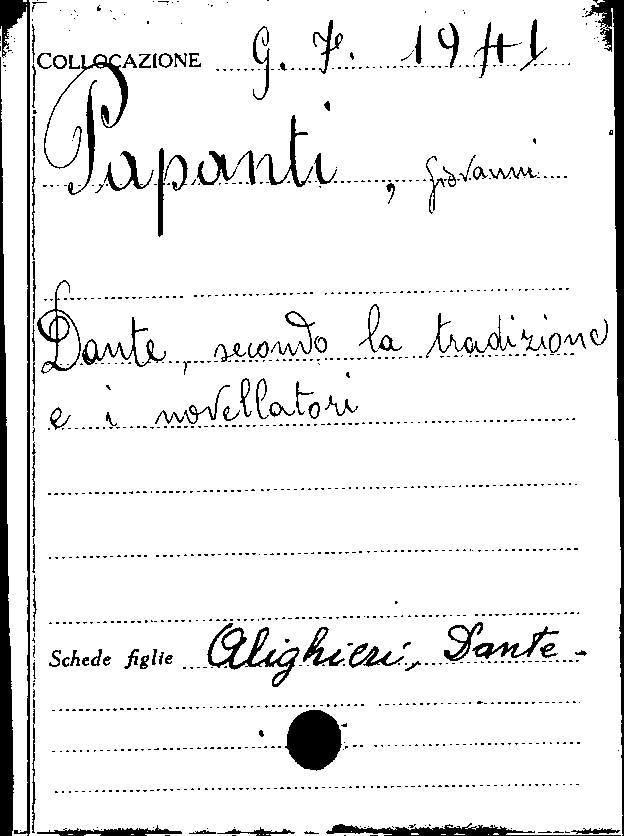 COLLOCAZIONE G. 7. 1941
Papanti, Giovanni
Dante, secondo la tradizione
e i novellatori
Schede figlie Alighieri, Dante -